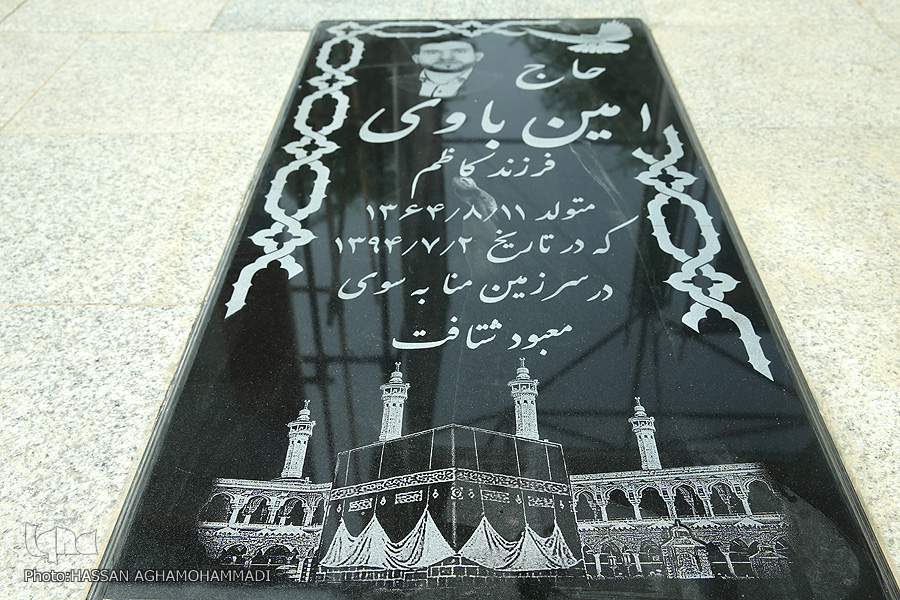 حاج
امین باوی
فرزند کاظم
متولد ۱۳۶۴/۸/۱۱
که در تاریخ ۱۳۹۴/۷/۲
در سرزمین منا به سوی
معبود شتافت
iqna
Photo:HASSAN AGHAMOHAMMADI